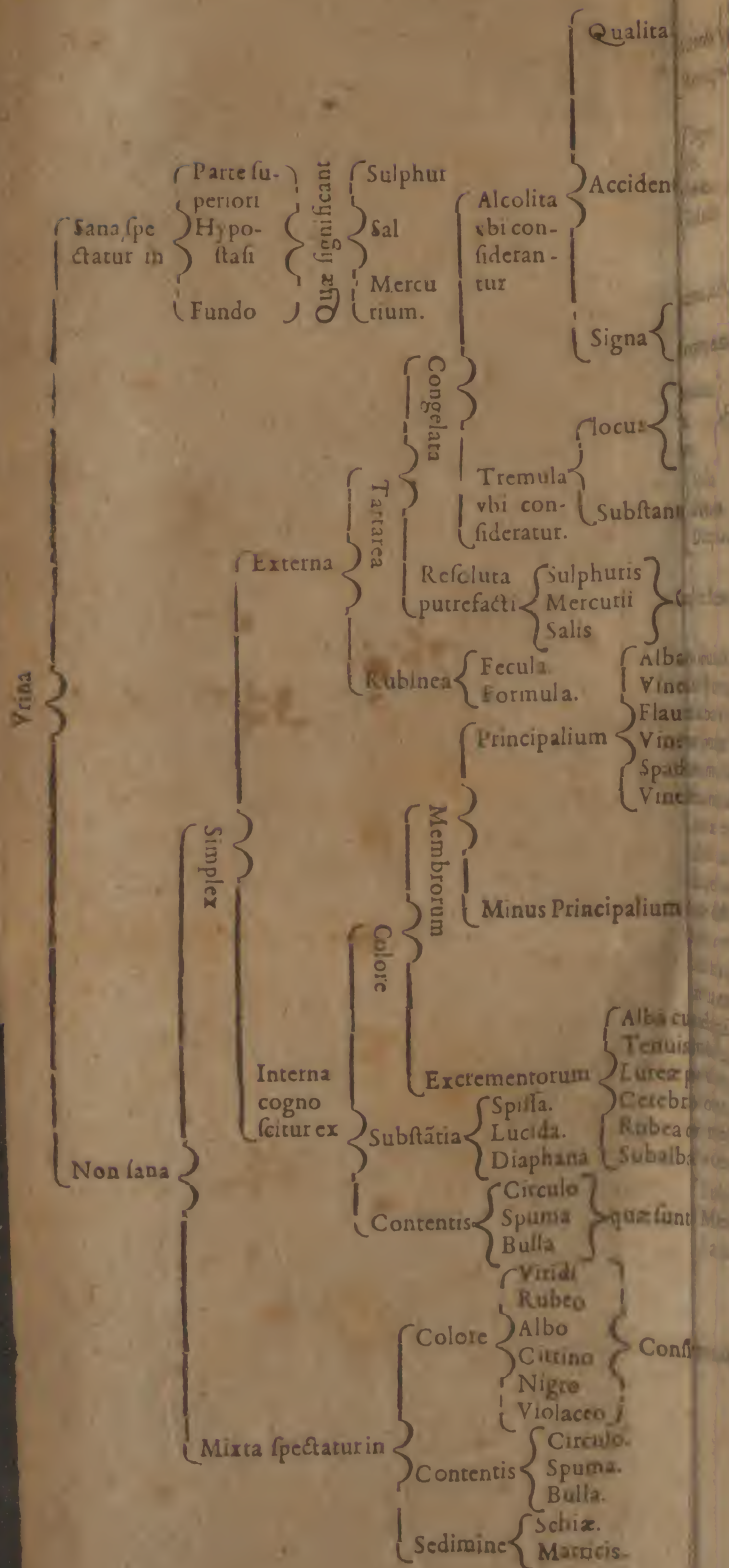 Vrina
Sana ſpe
ctatur in
Parte ſu-
periori
Hypo-
ſtaſi
Fundo
Quæ ſignificant
Sulphur
Sal
Mercu
rium.
Non ſana
Simplex
Externa
Tartarea
Congelata
Alcolita
vbi con-
ſideran-
tur
Qualita
Acciden
Signa
Tremula
vbi con-
ſideratur.
locus
Subſtan
Reſoluta
putrefacti
Sulphuris
Mercurii
Salis
Rubinea
Fecula.
Formula.
Interna
cogno
ſcitur ex
Colore
Membrorum
Principalium
Alba
Flau
Minus Principalium
Excrementorum
Alba cu
Tenuis
Luteæ
Cerebr
Rubea
Subalba
Subſtãtia
Spiſſa.
Lucida.
Diaphana
Contentis
Circulo
Spuma
Bulla
quæ ſunt
Mixta ſpectatur in
Colore
Viridi
Rubeo
Albo
Cittino
Nigro
Violaceo
Conſi
Contentis
Circulo.
Spuma.
Bulla.
Sedimine
Schiæ.
Matricis.